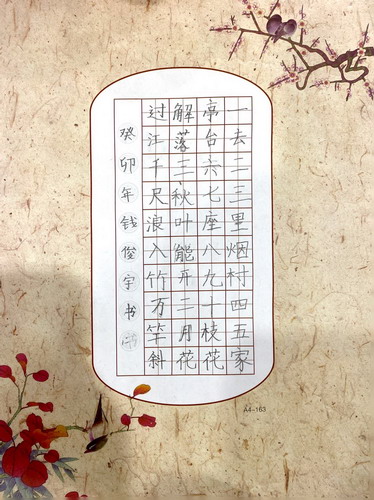 一去二三里烟村四五家
亭台六七座八九十枝花
解落三秋叶能开二月花
过江千尺浪入竹万竿斜
癸卯年钱俊宇书
A4-163